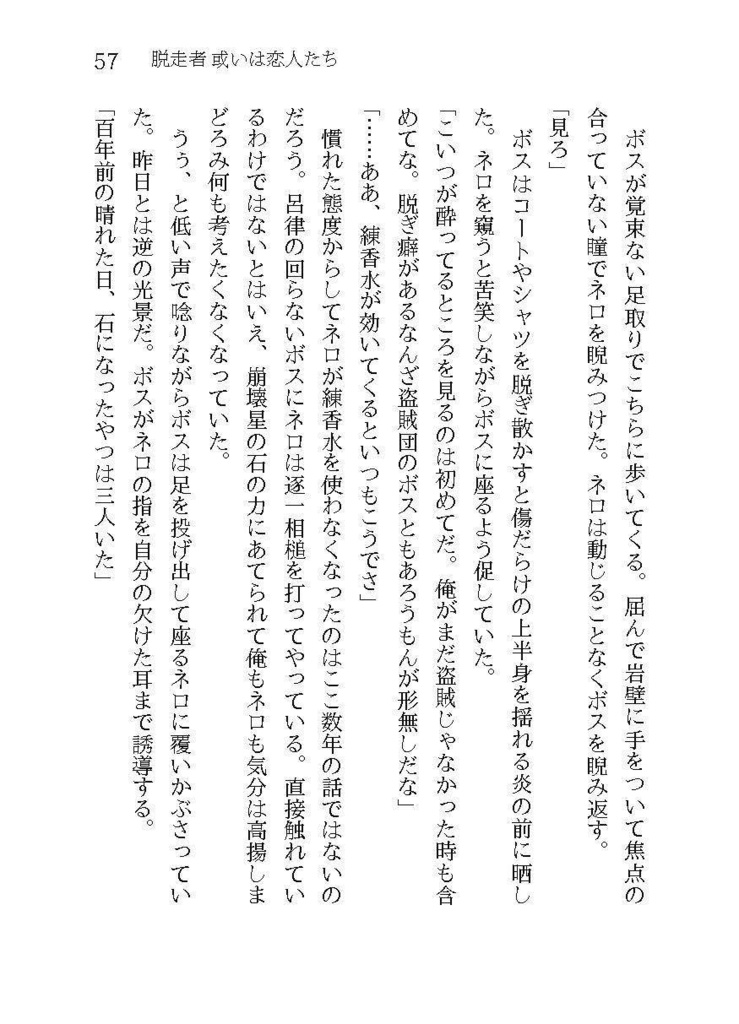 57 脱走者 或いは恋人たち
　ボスが覚束ない足取りでこちらに歩いてくる。屈んで岩壁に手をついて焦点の
合っていない瞳でネロを睨みつけた。ネロは動じることなくボスを睨み返す。
「見ろ」
　ボスはコートやシャツを脱ぎ散かすと傷だらけの上半身を揺れる炎の前に晒し
た。ネロを窺うと苦笑しながらボスに座るよう促していた。
「こいつが酔ってるところを見るのは初めてだ。俺がまだ盗賊じゃなかった時も含
めてな。脱ぎ癖があるなんざ盗賊団のボスともあろうもんが形無しだな」
「……ああ、練香水が効いてくるといつもこうでさ」
　慣れた態度からしてネロが練香水を使わなくなったのはここ数年の話ではないの
だろう。呂律の回らないボスにネロは逐一相槌を打ってやっている。直接触れてい
るわけではないとはいえ、崩壊星の石の力にあてられて俺もネロも気分は高揚しま
どろみ何も考えたくなくなっていた。
　うぅ、と低い声で唸りながらボスは足を投げ出して座るネロに覆いかぶさってい
た。昨日とは逆の光景だ。ボスがネロの指を自分の欠けた耳まで誘導する。
「百年前の晴れた日、石になったやつは三人いた」